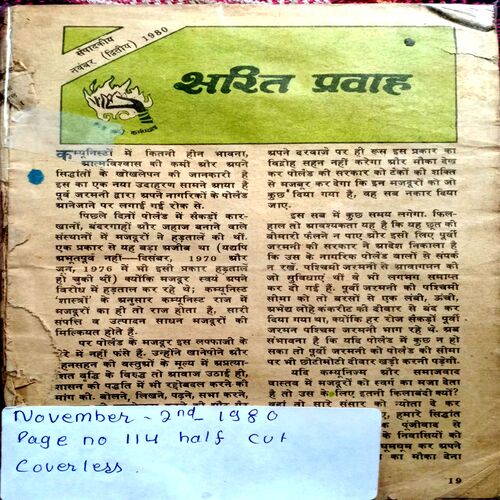 संपादकीय
नवंबर (द्वितीय) 1980
सरित प्रवाह
कम्युनिस्टों में कितनी हीन भावना,
आत्मविश्वास की कमी और अपने
सिद्धांतों के खोखलेपन की जानकारी है
इस का एक नया उदाहरण सामने आया है
पूर्व जरमनी द्वारा अपने नागरिकों के पोलैंड
आनेजाने पर लगाई गई रोक से.
पिछले दिनों पोलैंड में सैंकड़ों कार-
खानों, बंदरगाहों और जहाज बनाने वाले
संस्थानों में मजदूरों ने हड़तालें की थीं.
एक प्रकार से यह बड़ा अजीब था (यद्यपि
अभूतपूर्व नहीं—दिसंबर, 1970 और
जून, 1976 में भी इसी प्रकार हड़तालें
हो चुकी थीं) क्योंकि मजदूर स्वयं अपने
विरोध में हड़ताल कर रहे थे; कम्युनिस्ट
'शास्त्रों' के अनुसार कम्युनिस्ट राज में
मजदूरों का ही तो राज होता है, सारी
संपत्ति व उत्पादन साधन मजदूरों की
मिल्कियत होते हैं.
पर पोलैंड के मजदूर इस लफ्फाजी के
फेरे में नहीं फंसे हैं. उन्होंने खानेपीने और
रहनसहन की वस्तुओं के मूल्य में अप्रत्या-
शित वृद्धि के विरुद्ध तो आवाज उठाई ही,
शासन की पद्धति में भी रद्दोबदल करने की
मांग की. बोलने, लिखने, पढ़ने, सभा करने,
अपने दरवाजे पर ही रूस इस प्रकार का
विद्रोह सहन नहीं करेगा और मौका देख
कर पोलैंड की सरकार को टैंकों की शक्ति
से मजबूर कर देगा कि इन मजदूरों को जो
कुछ दिया गया है, वह सब नकार दिया
जाए.
इस सब में कुछ समय लगेगा. फिल-
हाल तो आवश्यकता यह है कि यह छूत की
बीमारी फैलने न पाए और इसी लिए पूर्वी
जरमनी की सरकार ने आदेश निकाला है
कि उस के नागरिक पोलैंड वालों से संपर्क
न रखें. पश्चिमी जरमनी से आवागमन की
जो सुविधाएं थीं वे भी लगभग समाप्त
कर दी गई हैं. पूर्वी जरमनी की पश्चिमी
सीमा को तो बरसों से एक लंबी, ऊंची,
अभेद्य लोहे कंकरीट की दीवार से बंद कर
दिया गया था, क्योंकि हर रोज सैंकड़ों पूर्वी
जरमन पश्चिम जरमनी भाग रहे थे. अब
संभावना है कि यदि पोलैंड में कुछ न हो
सका तो पूर्वी जरमनी को पोलैंड की सीमा
पर भी छोटीमोटी दीवार खड़ी करनी पड़ेगी.
यदि कम्युनिज्म और समाजवाद
वास्तव में मजदूरों को स्वर्ग का मजा देता
है तो उस के लिए इतनी किलाबंदी क्यों?
वहां तो सारे संसार को न्योता दे कर
हमारे सिद्धांत
पूंजीवाद से
के निवासियों को
घूमघूम कर अपने
का मौका देना
19
November - 2nd - 1980
Page no 114 half cut
Coverless.